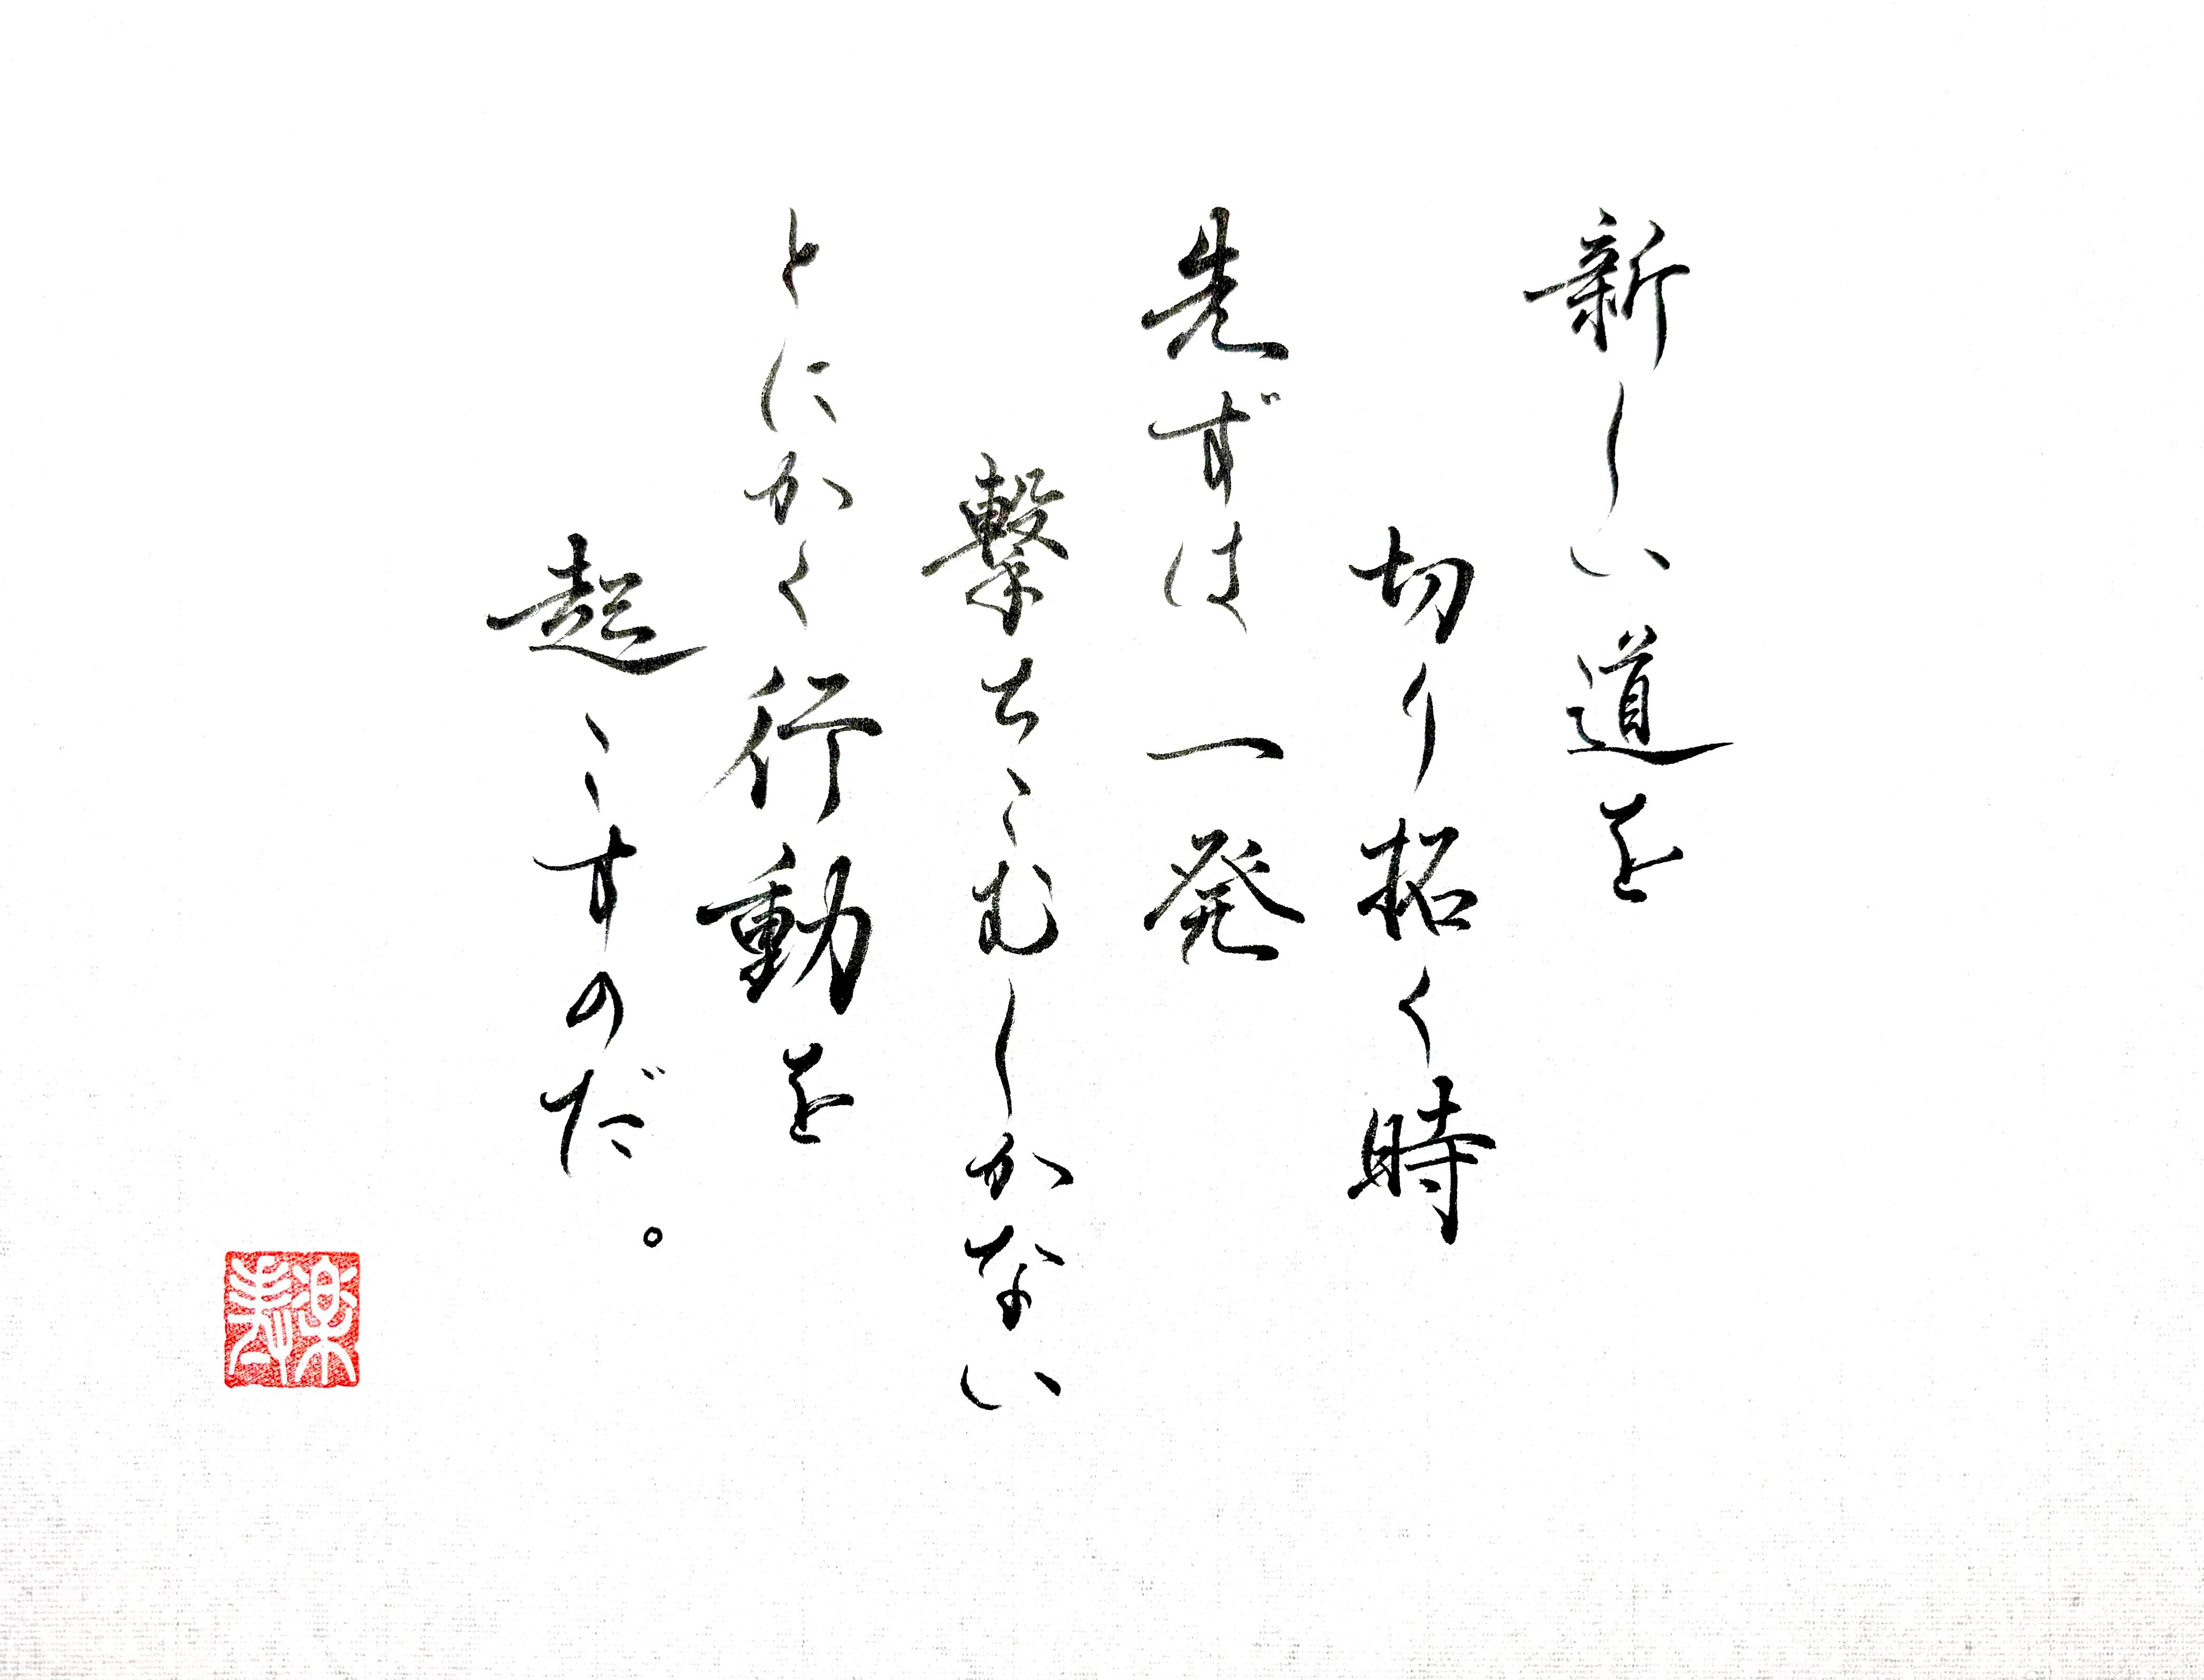 新しい道を
切り拓く時
先ずは一発
撃ちこむしかない
とにかく行動を
起こすのだ。